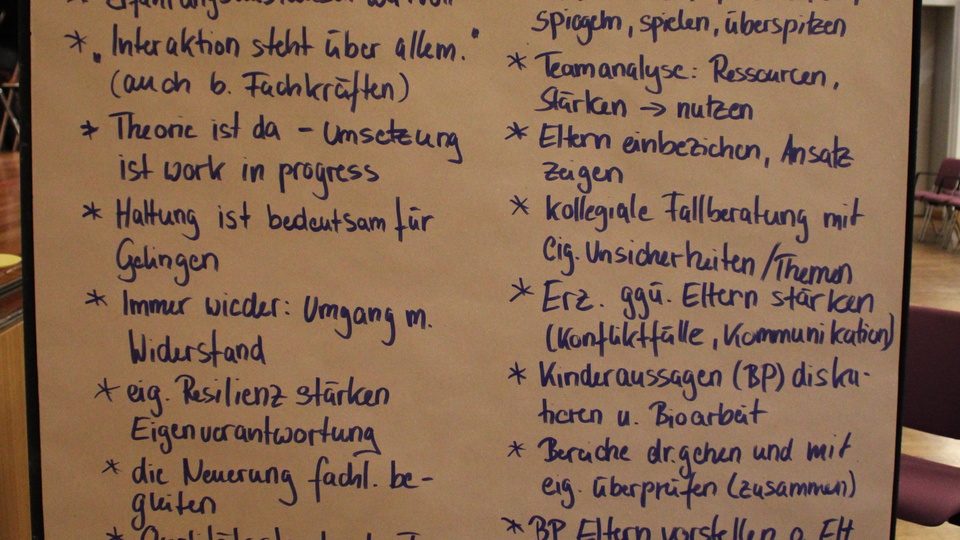 * „Interaktion steht über allem."
(auch b. Fachkräften)
* Theorie ist da – Umsetzung
ist work in progress
* Haltung ist bedeutsam für
Gelingen
* Immer wieder: Umgang m.
Widerstand
* eig. Resilienz stärken
Eigenverantwortung
* die Neuerung fachl. be-
gleiten
spiegeln, spielen, überspitzen
* Teamanalyse: Ressourcen,
Stärken → nutzen
* Eltern einbeziehen, Ansatz
zeigen
* kollegiale Fallberatung mit
eig. Unsicherheiten/Themen
* Erz. ggü. Eltern stärken
(Konfliktfälle, Kommunikation)
* Kinderaussagen (BP) disku-
tieren u. Bioarbeit
* Bereiche dr.gehen und mit
eig. überprüfen (zusammen)
* BP Eltern vorstellen